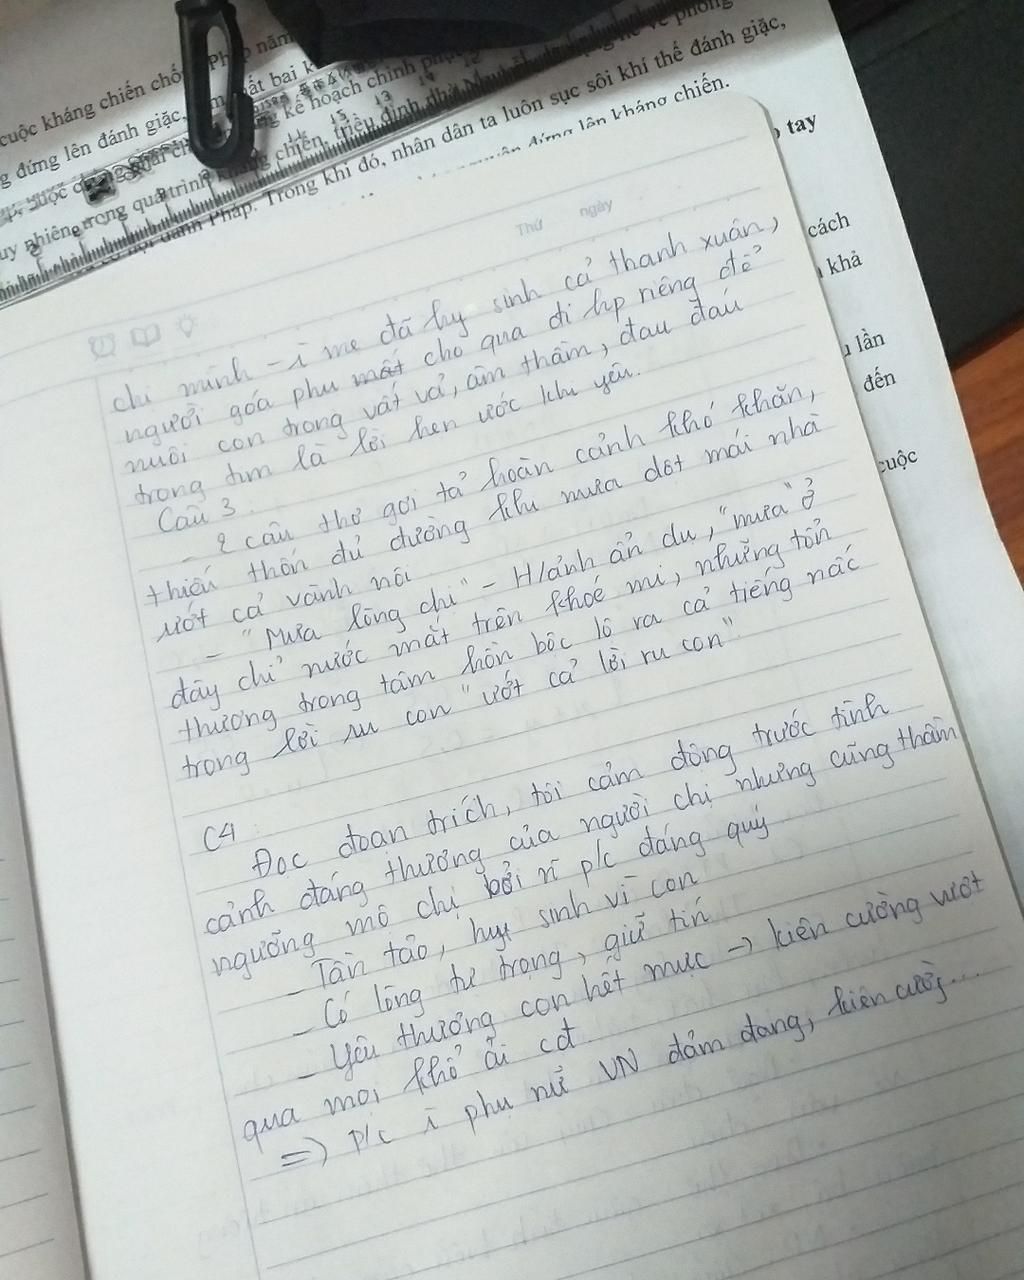 cuộc kháng chiến chố
Pháp năm
g đứng lên đánh giặc,
kế hoạch
uy nhiên trong quá trình kháng chiến, triều đình nhà
Pháp. Trong khi đó, nhân dân ta luôn sục sôi khí thế đánh giặc,
đứng lên kháng chiến.
tay
cách
khả
lần
đến
cuộc
Thứ ngày
chi mình - ì mẹ đã hy sinh cả thanh xuân,
người góa phụ mất cho qua đi hp riêng để
nuôi con trong vất vả, âm thầm, đau đáu
trong tim là lời hẹn ước khi yêu.
Câu 3.
- 2 câu thơ gợi tả hoàn cảnh khó khăn,
thiếu thốn đủ đường khi mưa dột mái nhà
ướt cả vành nôi
- "Mưa lòng chị" - H/ảnh ẩn dụ, "mưa" ở
đây chỉ nước mắt trên khoé mi, những tổn
thương trong tâm hồn bộc lộ ra cả tiếng nấc
trong lời ru con "ướt cả lời ru con"
C4
Đọc đoạn trích, tôi cảm động trước tình
cảnh đáng thương của người chị nhưng cũng thầm
ngưỡng mộ chị bởi n~ p/c đáng quý
- Tần tảo, hy sinh vì con
- Có lòng tự trọng, giữ tín
- Yêu thương con hết mực -> kiên cường vượt
qua mọi khổ ải cđ
=> p/c ì phụ nữ VN đảm đang, kiên cườg...